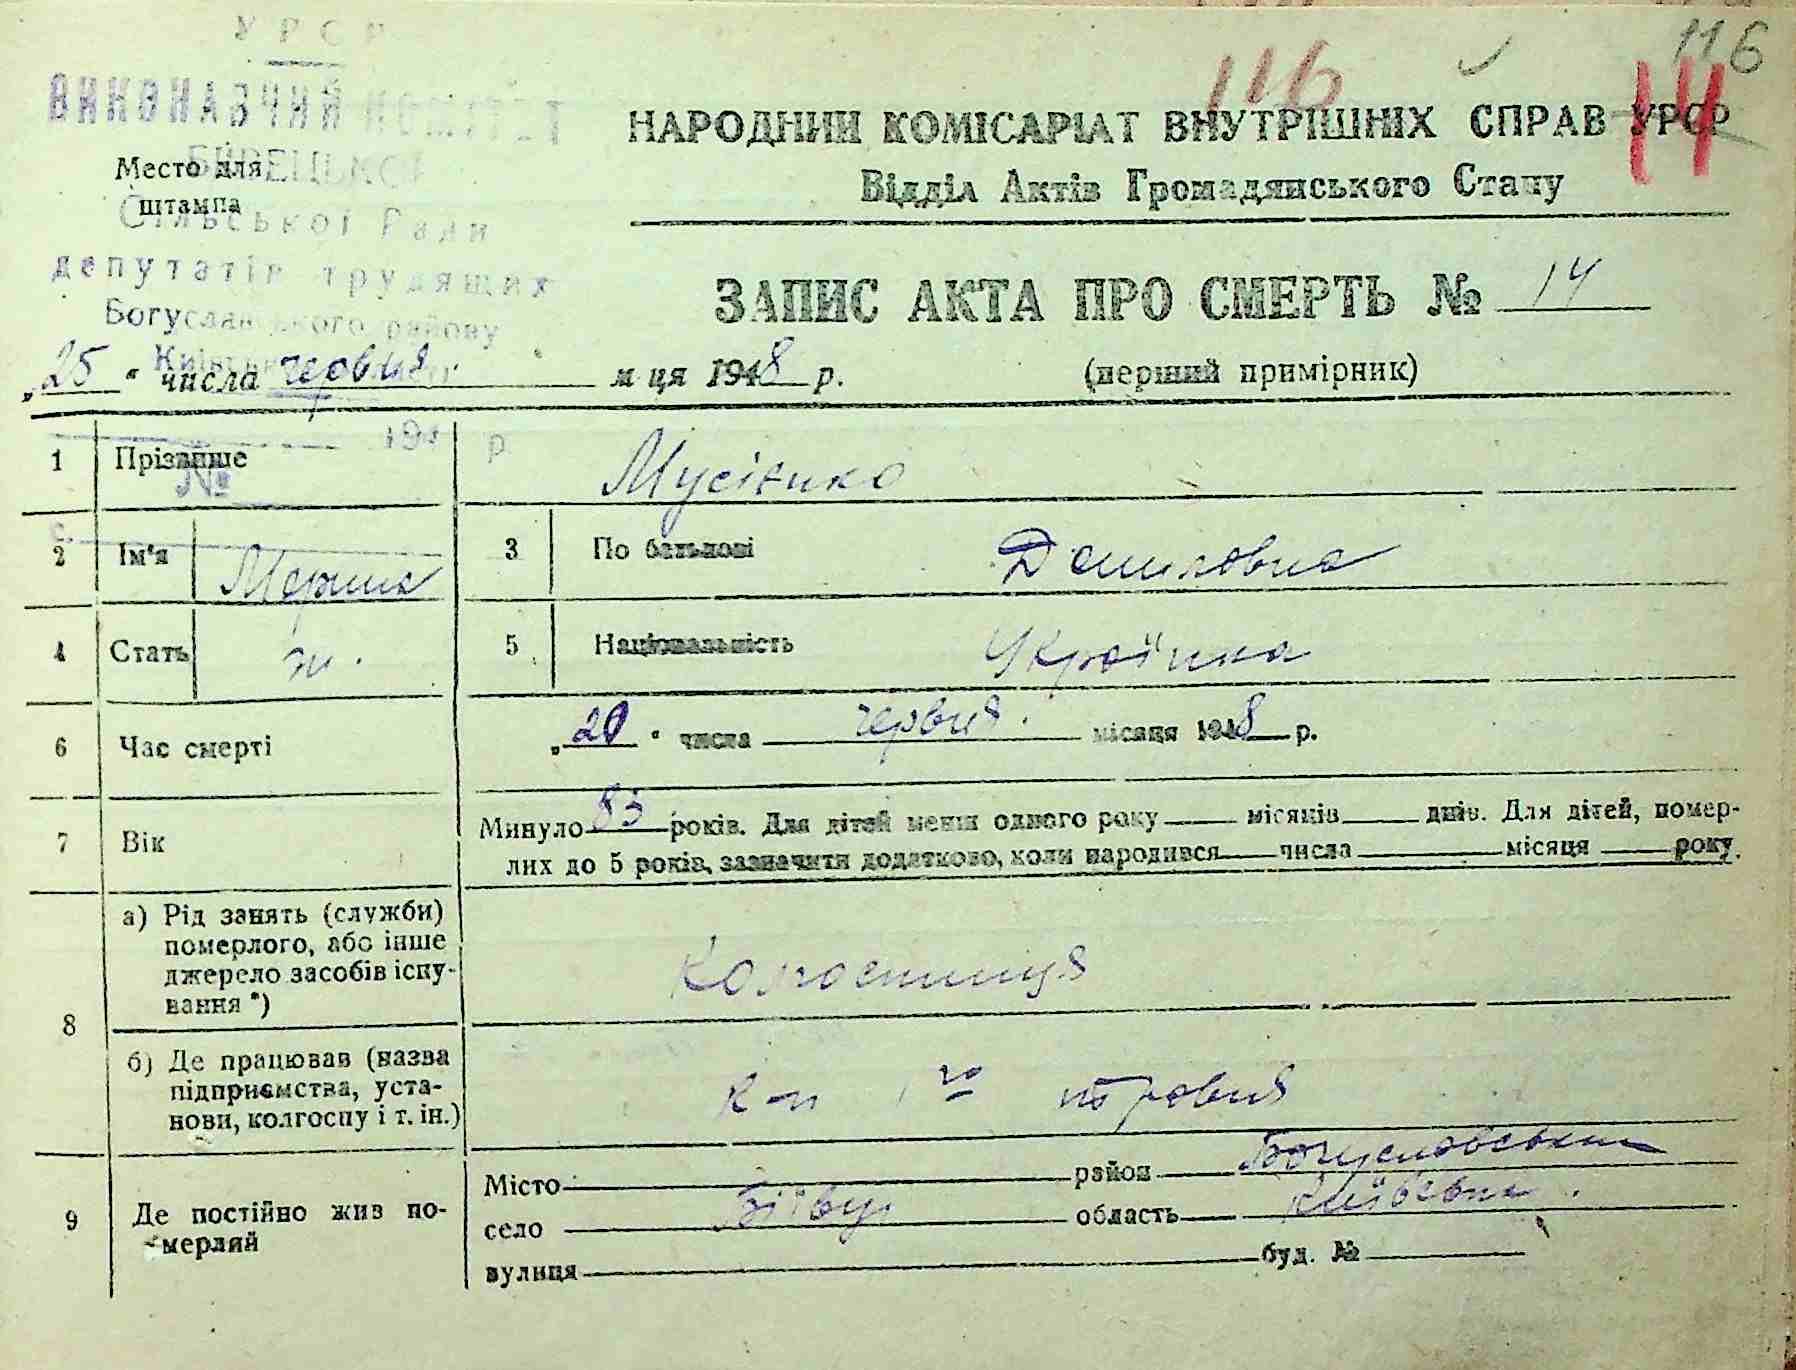 УРСР
ВИКОНАВЧИЙ КОМІТЕТ
Сільської Ради
депутатів трудящих
Богуславського району
Место для
штампа
116
116
14
НАРОДНИЙ КОМІСАРІАТ ВНУТРІШНІХ СПРАВ УРСР
Відділ Актів Громадянського Стану
ЗАПИС АКТА ПРО СМЕРТЬ № 14
„25“ числа червня м ця 1948 р. (перший примірник)
194 р
№
1 Прізвище Мусієнко
2 Ім'я 3 По батькові
4 Стать ж. 5 Національність Українка
6 Час смерті „20“ числа червня місяця 1948 р.
7 Вік Минуло 83 років. Для дітей менш одного року місяців днів. Для дітей, помер-
лих до 5 років, зазначити додатково, коли народився числа місяця року.
8 а) Рід занять (служби)
померлого, або інше
джерело засобів існу-
вання *) Колгоспниця
б) Де працював (назва
підприємства, уста-
нови, колгоспу і т. ін.) к-п 1го
9 Де постійно жив по-
мерлий
Місто район Богуславський
село область Київська
вулиця буд. №